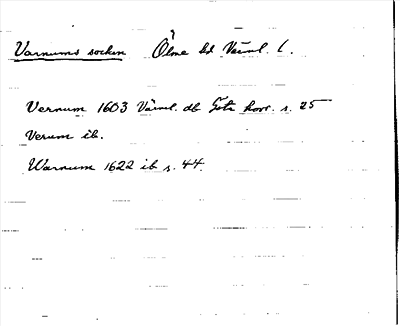 Varnums socken Ölme hd Värml. l.
Vernum 1603 Värml. db Göta hovr. s. 25
Verum ib.
Warnum 1622 ib s. 44.